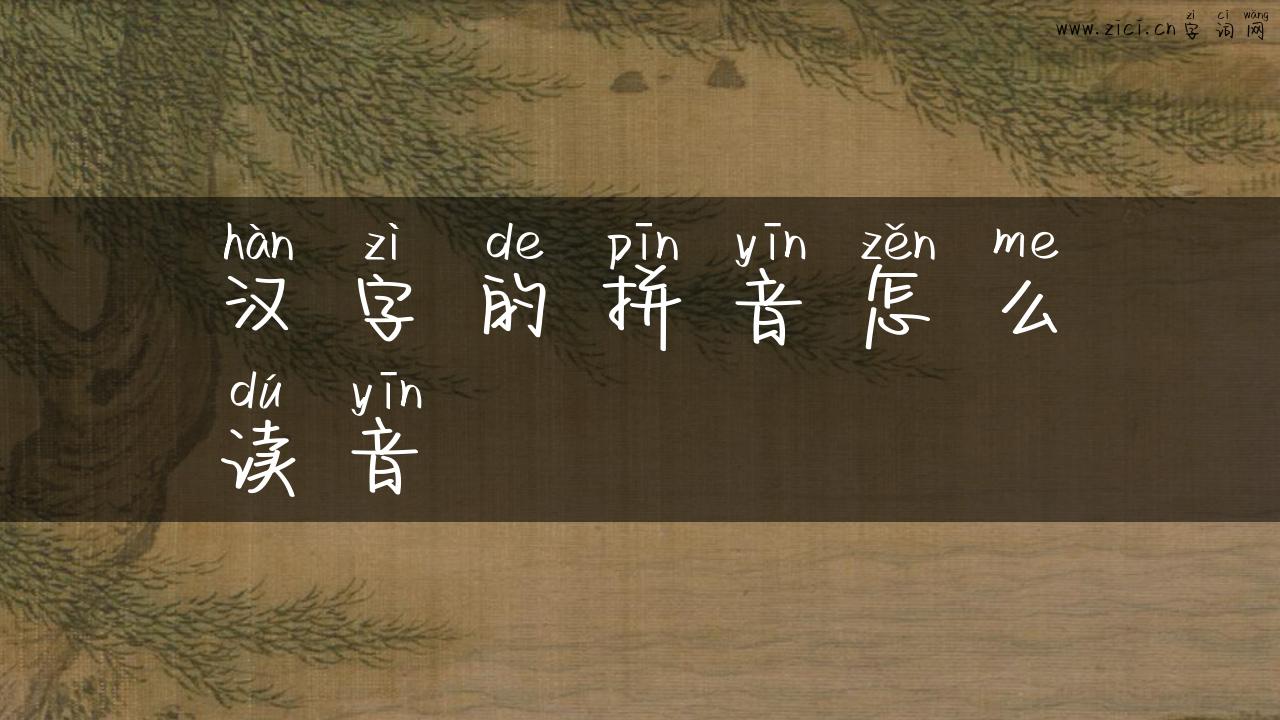 zì cí wǎng
www.zici.cn 字词网
hàn zì de pīn yīn zěn me
汉字的拼音怎么
dú yīn
读音